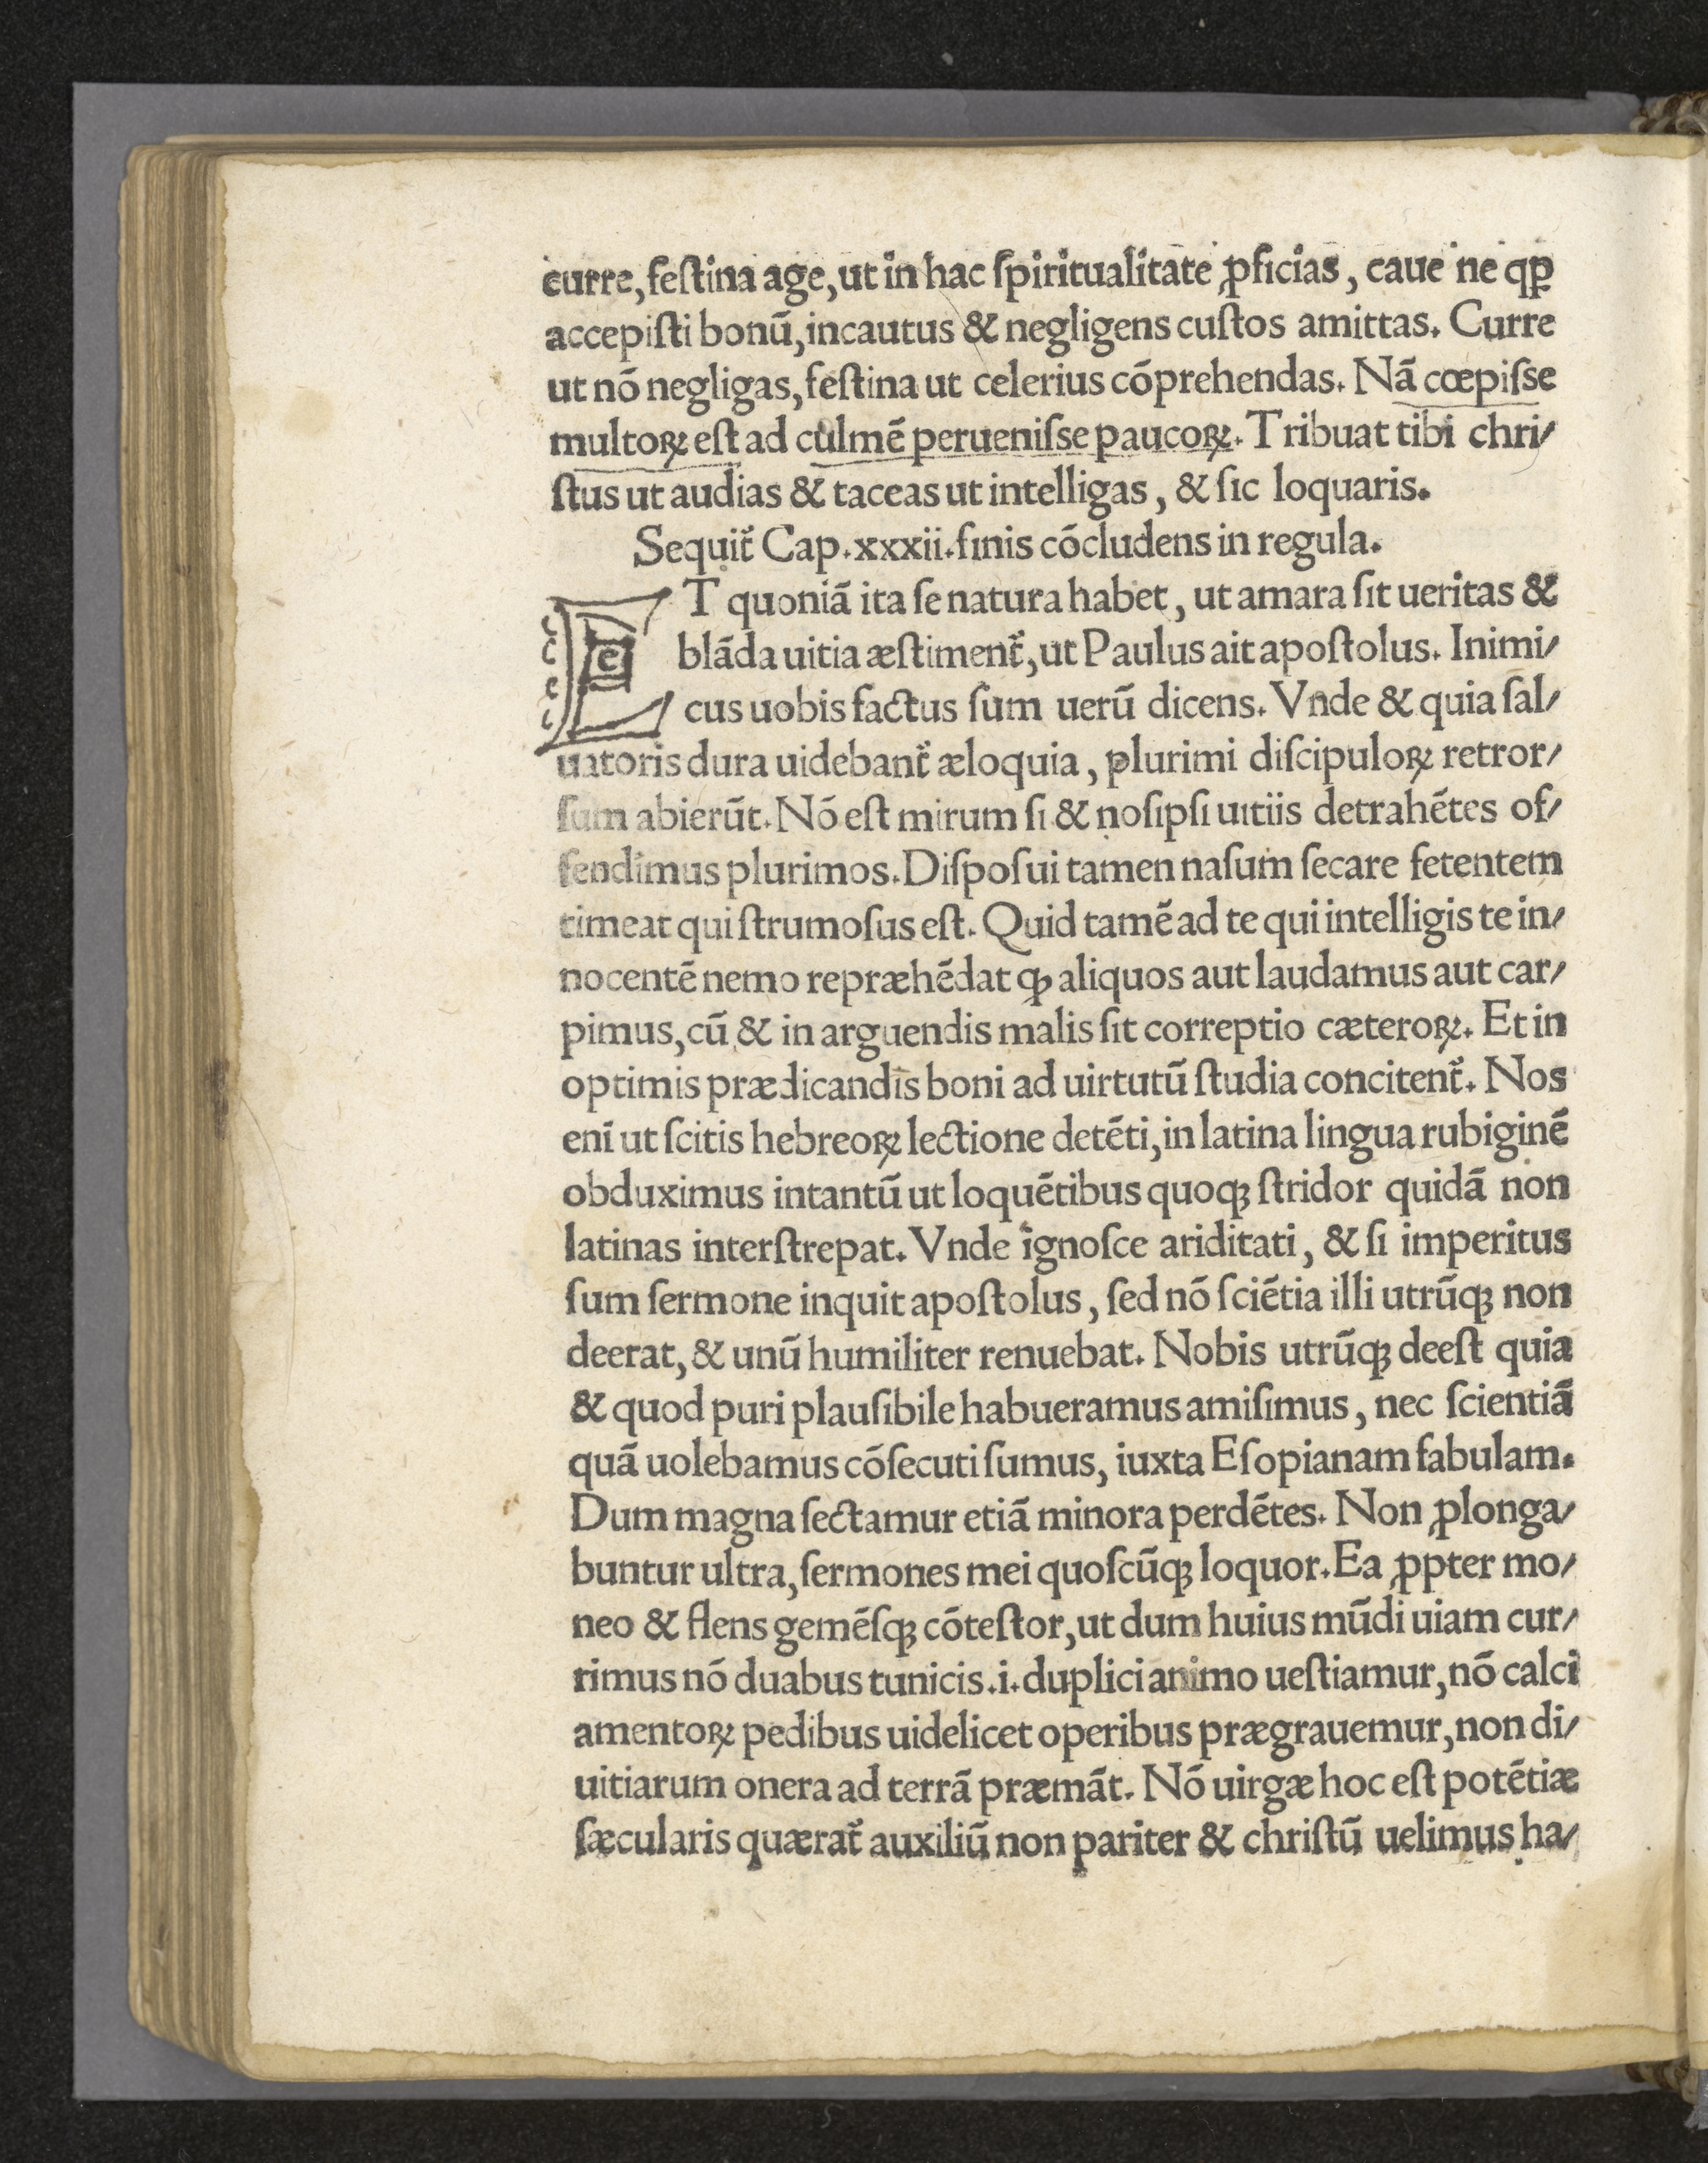 curre, feſtina age, ut in hac ſpiritualitate ꝓficias, caue ne qꝑ
accepiſti bonū, incautus & negligens cuſtos amittas. Curre
ut nō negligas, feſtina ut celerius cōprehendas. Nā cœpiſse
multoꝝ eſt ad culmē perueniſse paucoꝝ. Tribuat tibi chri/
ſtus ut audias & taceas ut intelligas, & ſic loquaris.
Sequit̃ Cap.xxxii.finis cōcludens in regula.
ET quoniā ita ſe natura habet, ut amara ſit ueritas &
blāda uitia æſtiment̃, ut Paulus ait apoſtolus. Inimi/
cus uobis factus ſum uerū dicens. Vnde & quia ſal/
uatoris dura uidebant̃ æloquia, plurimi diſcipuloꝝ retror/
ſum abierūt. Nō eſt mirum ſi & noſipſi uitiis detrahētes of/
fendimus plurimos. Diſpoſui tamen naſum ſecare fetentem
timeat qui ſtrumoſus eſt. Quid tamē ad te qui intelligis te in/
nocentē nemo repræhēdat ꝙ aliquos aut laudamus aut car/
pimus, cū & in arguendis malis ſit correptio cæteroꝝ. Et in
optimis prædicandis boni ad uirtutū ſtudia concitent̃. Nos
enī ut ſcitis hebreoꝝ lectione detēti, in latina lingua rubiginē
obduximus intantū ut loquētibus quoqꝫ ſtridor quidā non
latinas interſtrepat. Vnde ignoſce ariditati, & ſi imperitus
ſum ſermone inquit apoſtolus, ſed nō ſciētia illi utrūqꝫ non
deerat, & unū humiliter renuebat. Nobis utrūqꝫ deeſt quia
& quod puri plauſibile habueramus amiſimus, nec ſcientiā
quā uolebamus cōſecuti ſumus, iuxta Eſopianam fabulam.
Dum magna ſectamur etiā minora perdētes. Non ꝓlonga/
buntur ultra, ſermones mei quoſcūqꝫ loquor. Ea ꝓpter mo/
neo & flens gemēſqꝫ cōteſtor, ut dum huius mūdi uiam cur/
rimus nō duabus tunicis .i. duplici animo ueſtiamur, nō calci
amentoꝝ pedibus uidelicet operibus prægrauemur, non di/
uitiarum onera ad terrā præmāt. Nō uirgæ hoc eſt potētiæ
ſæcularis quærat̃ auxiliū non pariter & chriſtū uelimus ha/